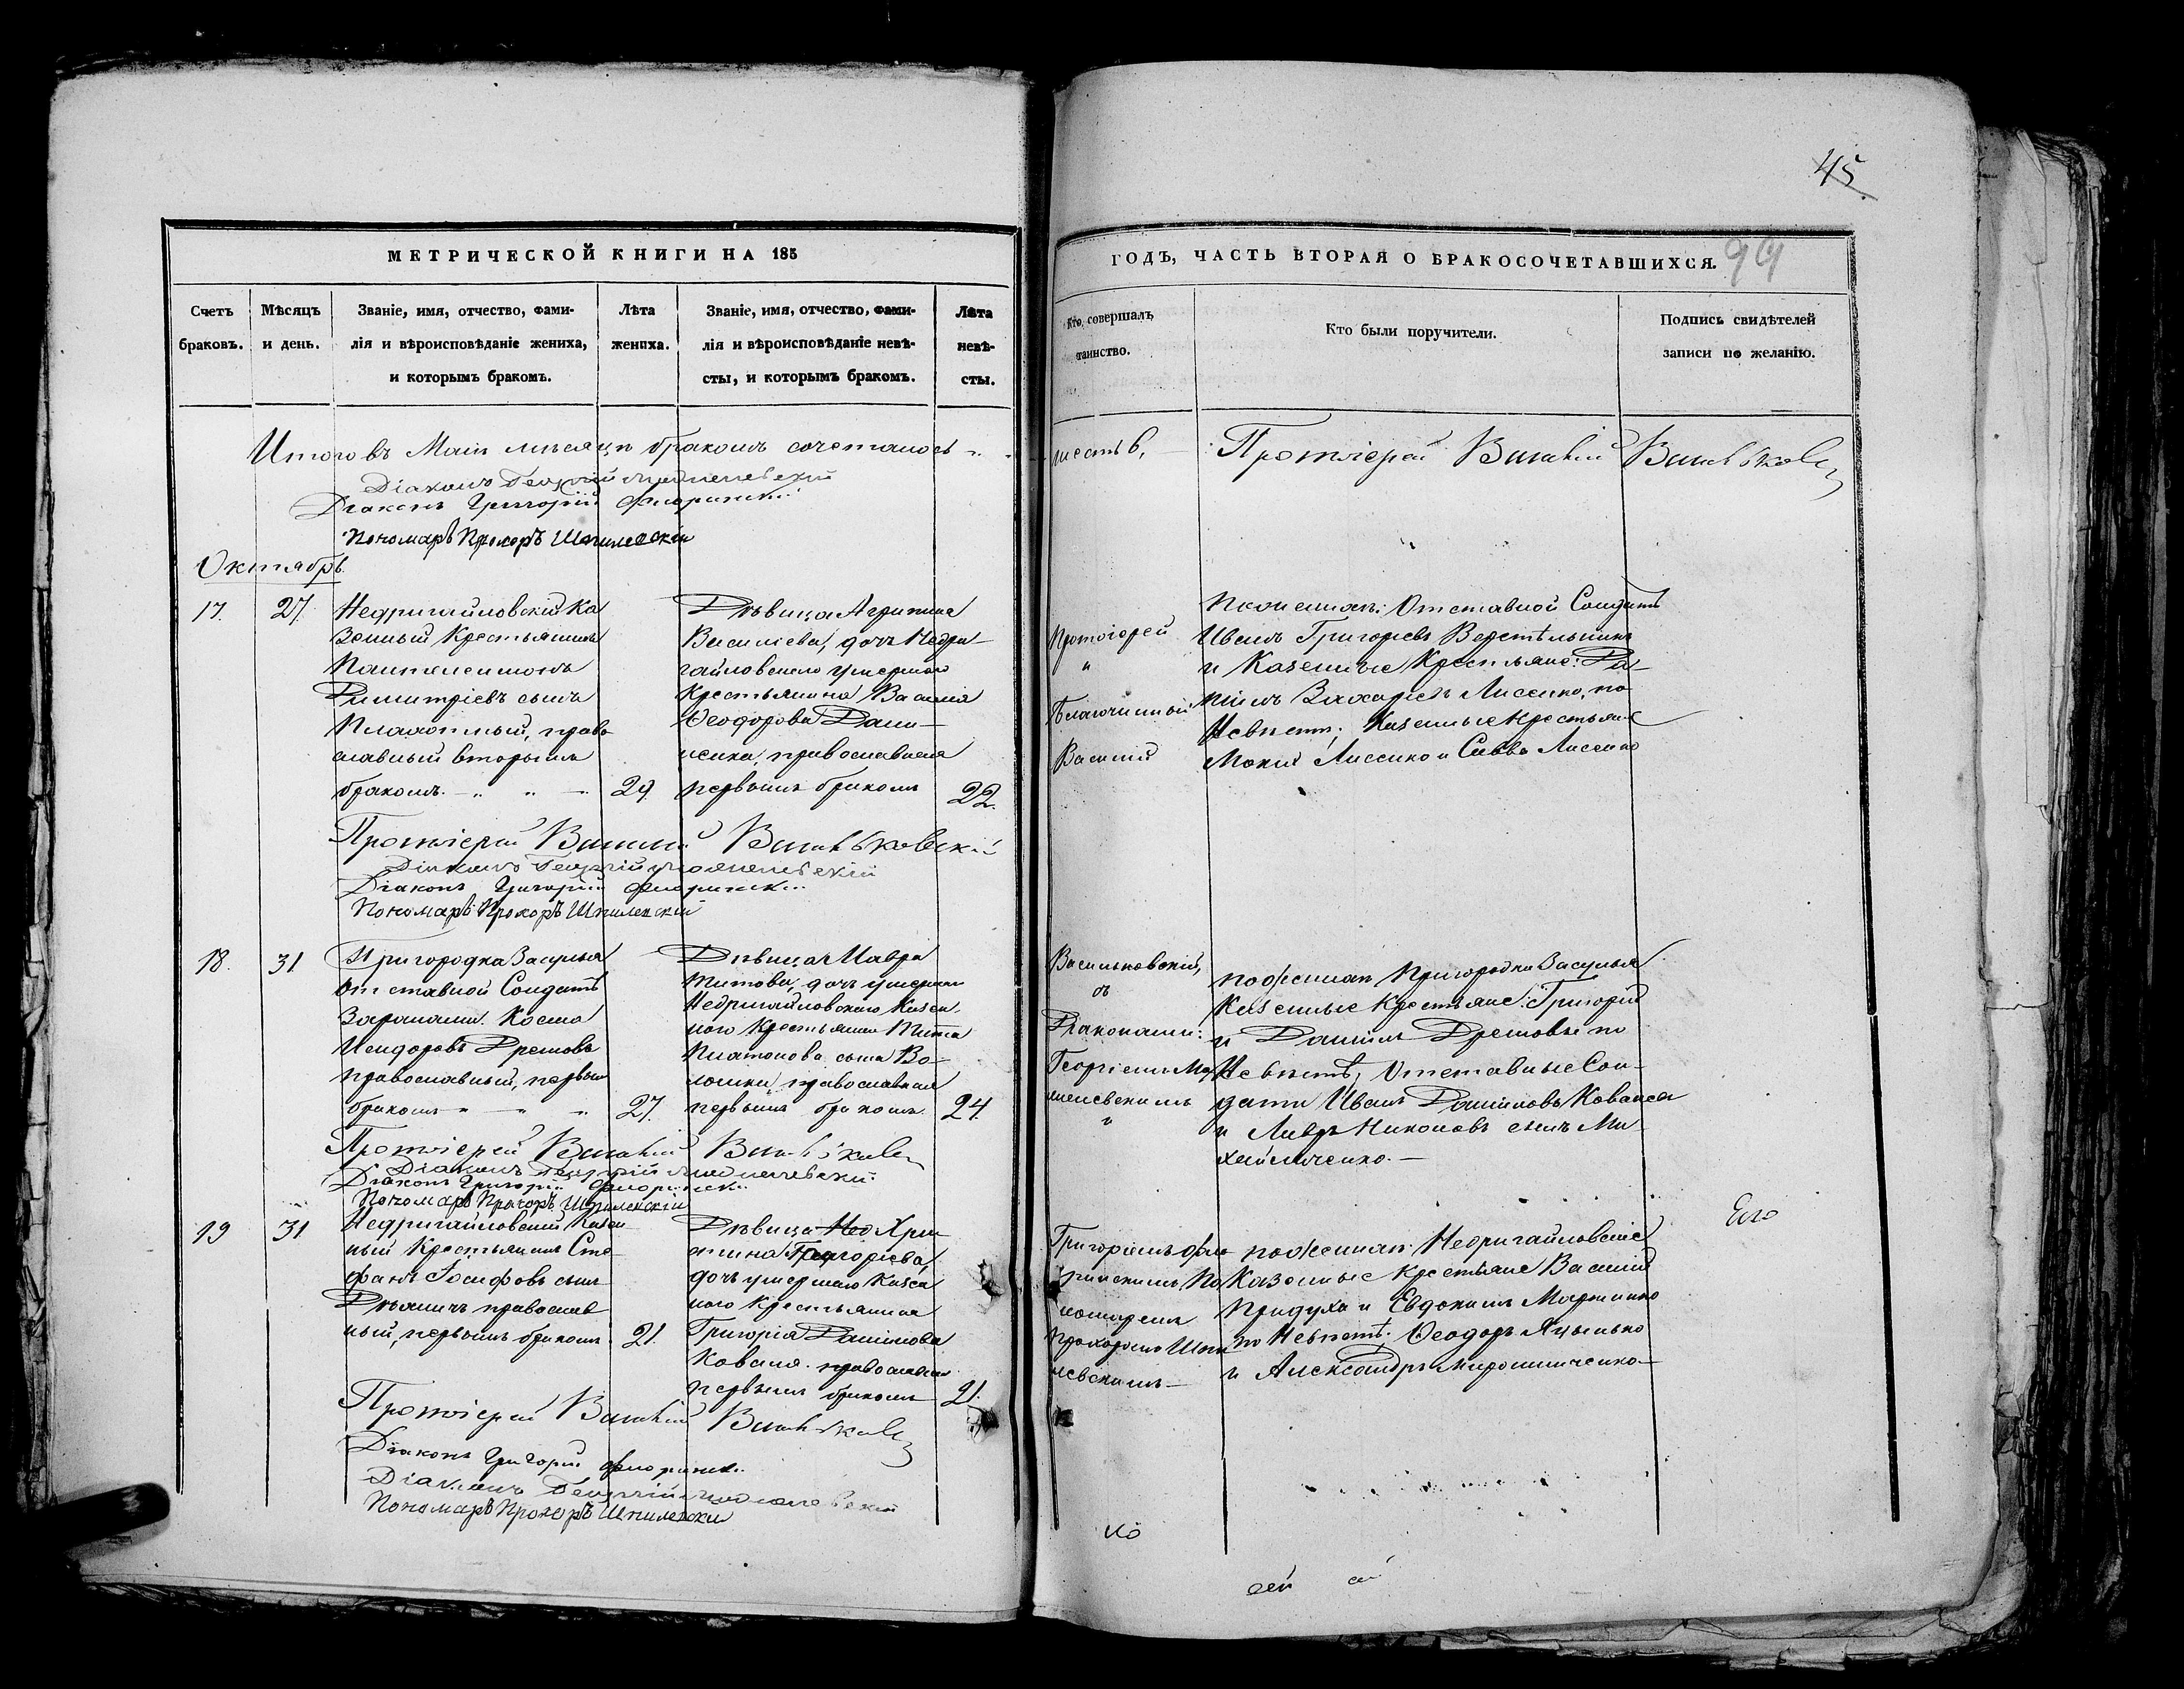 45
МЕТРИЧЕСКОЙ КНИГИ НА 185
ГОДЪ, ЧАСТЬ ВТОРАЯ О БРАКОСОЧЕТАВШИХСЯ.
99
Счетъ
браковъ.
Мѣсяцъ
и день.
Званіе, имя, отчество, фами-
лія и вѣроисповѣданіе жениха,
и которымъ бракомъ.
Лѣта
жениха.
Званіе, имя, отчество, фами-
лія и вѣроисповѣданіе невѣ-
сты, и которымъ бракомъ.
Лѣта
невѣ-
сты.
Кто совершалъ
таинство.
Кто были поручители.
Подпись свидѣтелей
записи по желанію.
Итого въ Маіи мѣсяцѣ бракомъ сочеталось
шесть 6,
Протоіерей Василій Васильковскій
Діаконъ Георгій
Діаконъ Григорій Флоринскій
Пономарь Прохоръ Шпилевскій
Октябрь
17.
27.
Недригайловскій Ка
зенный Крестьянинъ
Пантелеимонъ
Димитріевъ сынъ
православный вторымъ
бракомъ
29.
Дѣвица Агрипина
Василіева, дочь Недри-
гайловскаго умершаго
Крестьянина Василія
Ѳеодорова Дани-
ленка, православная
первымъ бракомъ
22.
Протоіерей
и
Благочинный
Василій
По женихѣ: Отставной Солдатъ
Иванъ Григорьевъ
и Казенные Крестьяне: Да-
ніилъ Захаріевъ Лисенко, по
Невѣстѣ; Казенные Крестьяне
Мокій Лисенко и Савва Лисенко
Протоіерей Василій Васильковскій
Діаконъ Георгій
Діаконъ Григорій Флоринскій
Пономарь Прохоръ Шпилевскій
18.
31
Пригородка Засулья
Отставной Солдатъ
Косма
Исидоровъ Дремовъ
православный, первымъ
бракомъ
27.
Дѣвица Мавра
Титова, дочь умершаго
Недригайловскаго Казен-
наго Крестьянина Тита
Платонова сына Во-
лошина православная
первымъ бракомъ
24.
Васильковскій,
съ
Діаконами:
Георгіемъ
и
по женихѣ Пригородка Засулья
Казенные Крестьяне: Григорій
и Даніилъ Дремовы по
Невѣстѣ, Отставные Сол-
даты Иванъ Даниловъ Коваль
и Лавръ Никоновъ сынъ Ми-
хайличенко.—
Протоіерей Василій Васильковскій
Діаконъ Георгій
Діаконъ Григорій Флоринскій
Пономарь Прохоръ Шпилевскій
19
31
Недригайловскій Казен
ный Крестьянинъ Сте-
фанъ Іосифовъ сынъ
православ
ный, первымъ бракомъ
21.
Дѣвица Хри
стина Григоріева,
дочь умершаго Казен
наго Крестьянина
Григорія Данилова
Коваля православная
первымъ бракомъ
21.
Григоріемъ Фло-
ринскимъ По
номаремъ
Прохоромъ Шпи
левскимъ—
по женихѣ: Недригайловскіе
Казенные Крестьяне Василій
Придуха и Евдокимъ Марченко
по Невѣстѣ: Ѳеодоръ Яцынько
и Александръ Мирошниченко—
Протоіерей Василій Васильковскій
Діаконъ Григорій Флоринскій
Діаконъ Георгій
Пономарь Прохоръ Шпилевскій